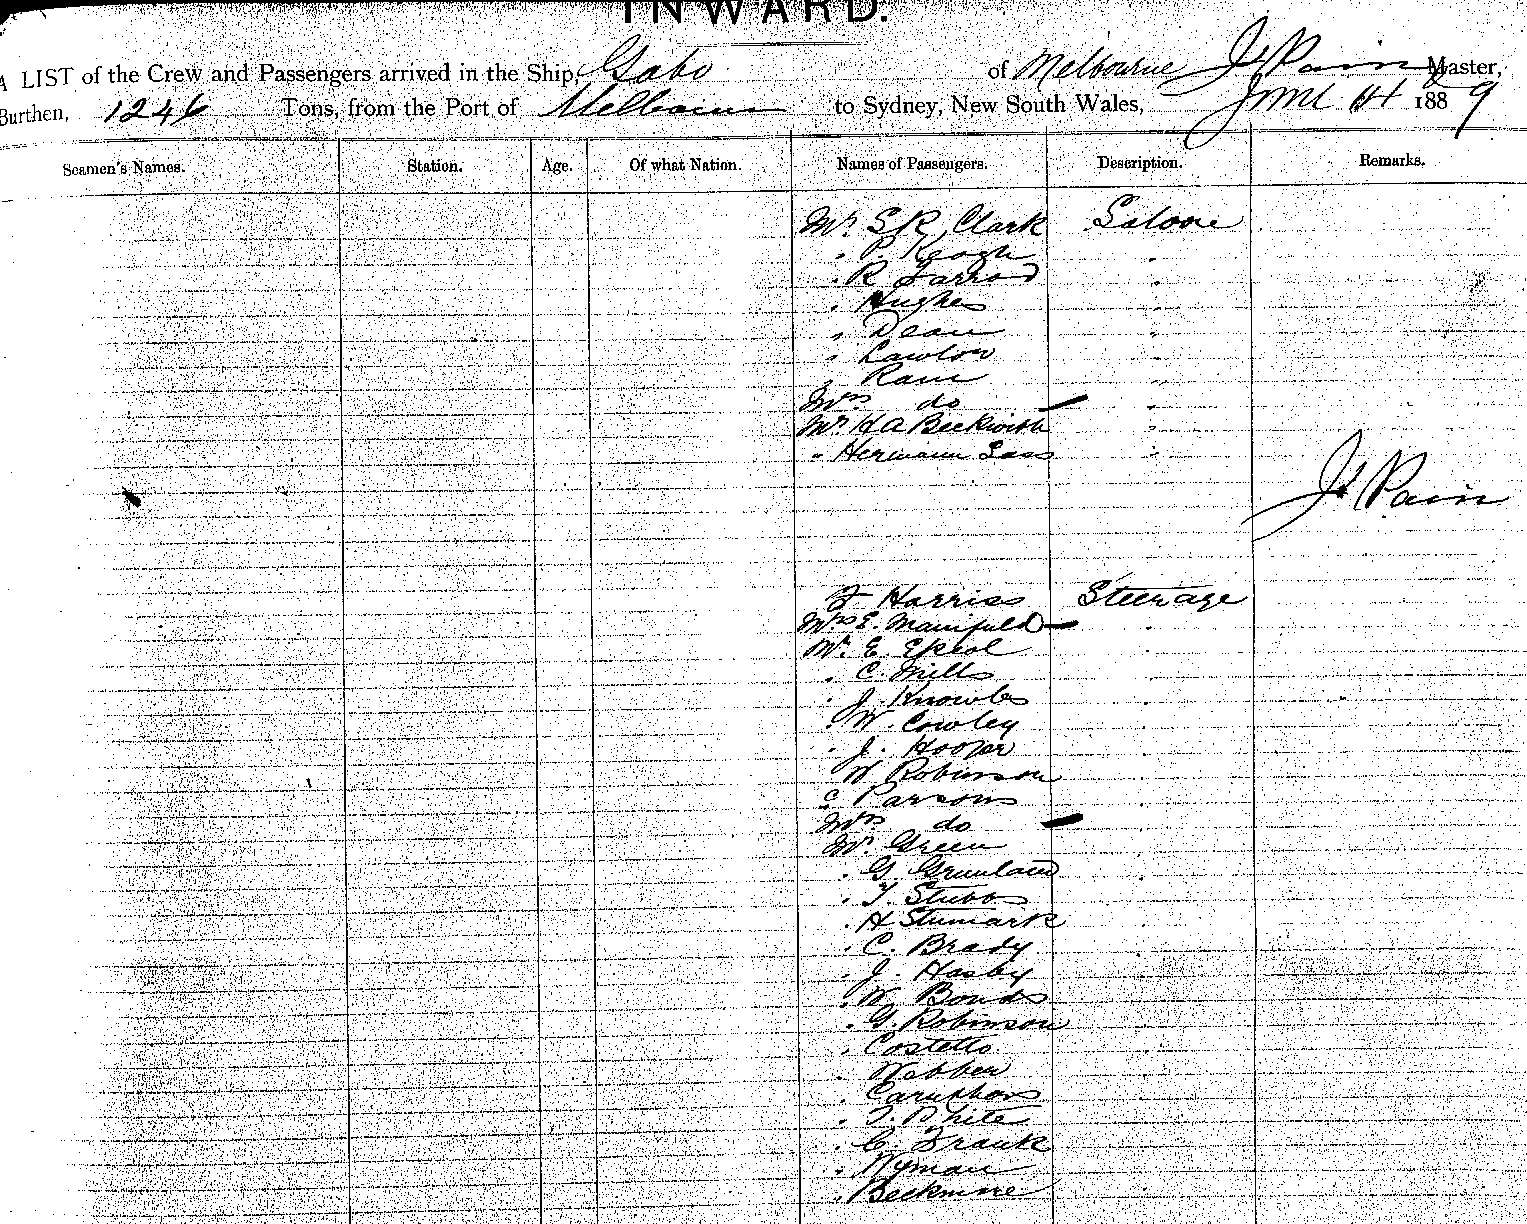 INWARD.
A LIST of the Crew and Passengers arrived in the Ship, Gabo of Melbourne Jn Pain Master,
Burthen, 1246 Tons, from the Port of Melbourne to Sydney, New South Wales, June 14 1889
Seamen's Names. Station. Age. Of what Nation. Names of Passengers. Description. Remarks.
Mr. S R Clark Saloon
" P. Keogh "
" R Jarrod "
" Hughes "
" Dean "
" Lawlor "
" Ram "
Mrs do "
Mr. H A Beckwith "
" Hermann "
Jn Pain
F Harriss Steerage
Mrs E. Manifold "
Mr. E.
" C. Mills
" J. Knowles
" W. Cowley
" J. Hooper
W Robinson
C Parsons
Mrs do
Mr. Green
" G.
" T. Stubbs
" H
" C. Brady
" J. Hasby
" W. Bonds
" G. Robinson
" Costello
" Webber
" Caruthers
" T. White
" C. Frank
" Wyman
" Beckmore